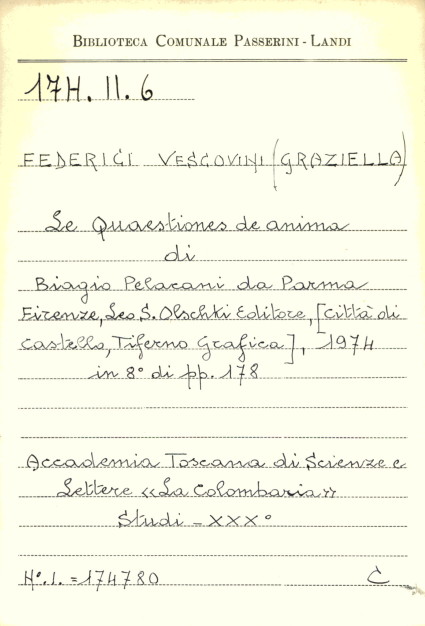 BIBLIOTECA COMUNALE PASSERINI - LANDI
17H. II. 6
FEDERICI VESCOVINI (GRAZIELLA)
Le Quaestiones de anima
di
Biagio Pelacani da Parma
Firenze, Leo S. Olschki Editore, [Città di
Castello, Tiferno Grafica], 1974
in 8° di pp. 178
Accademia Toscana di Scienze e
Lettere «La Colombaria»
Studi - XXX°
N°. I. = 174780 C